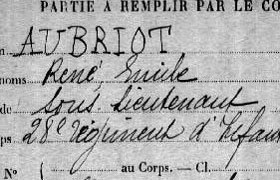 PARTIE À REMPLIR PAR LE CO
AUBRIOT
noms René Emile
de Sous-Lieutenant
ps 28e Régiment d'Infan
N° au Corps. — Cl.